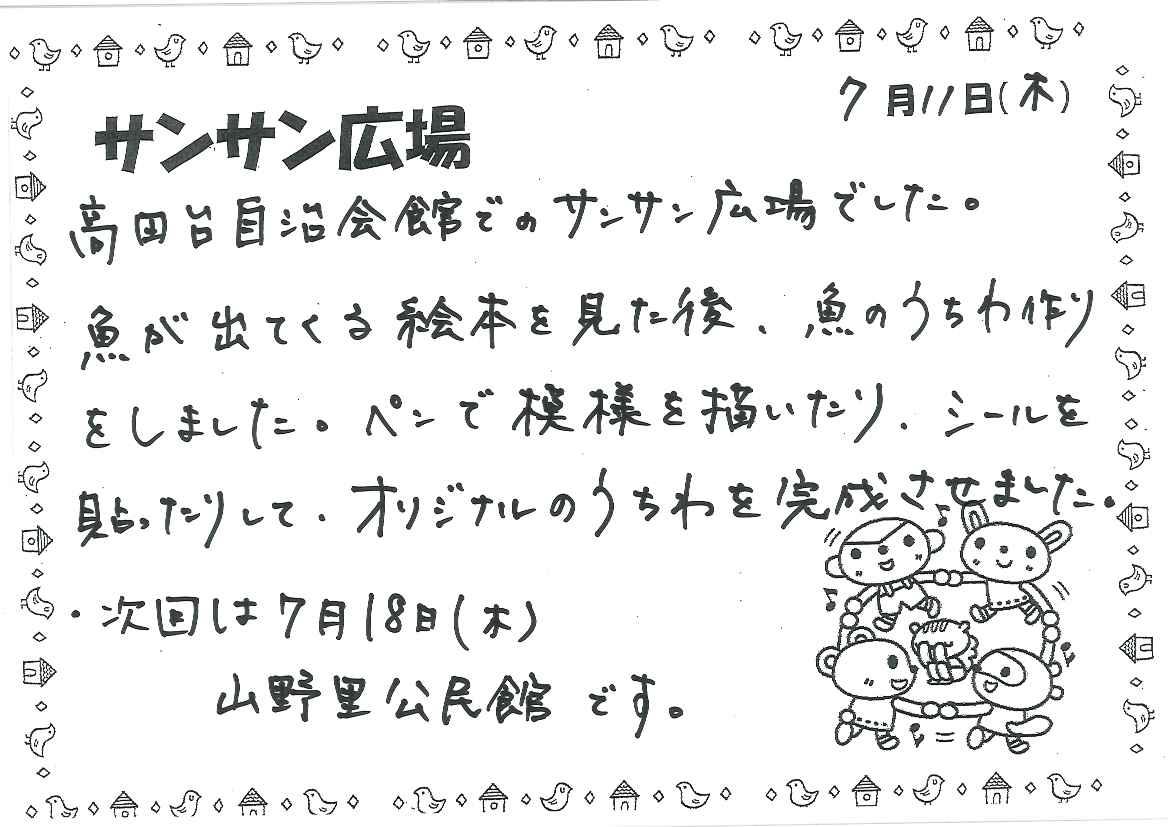 7月11日(木)
サンサン広場
高田台自治会館でのサンサン広場でした。
魚が出てくる絵本を見た後、魚のうちわ作り
をしました。ペンで模様を描いたり、シールを
貼ったりして、オリジナルのうちわを完成させました。
・次回は7月18日(木)
山野里公民館です。